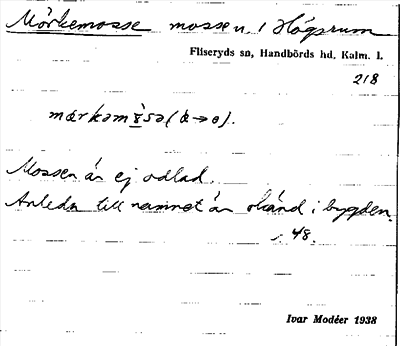 Mörkemosse mosse u. Högsrum
Fliseryds sn, Handbörds hd, Kalm. l.
218
Mossen är ej odlad.
Anledn till namnet är okänd i bygden.
s. 48.
Ivar Modéer 1938